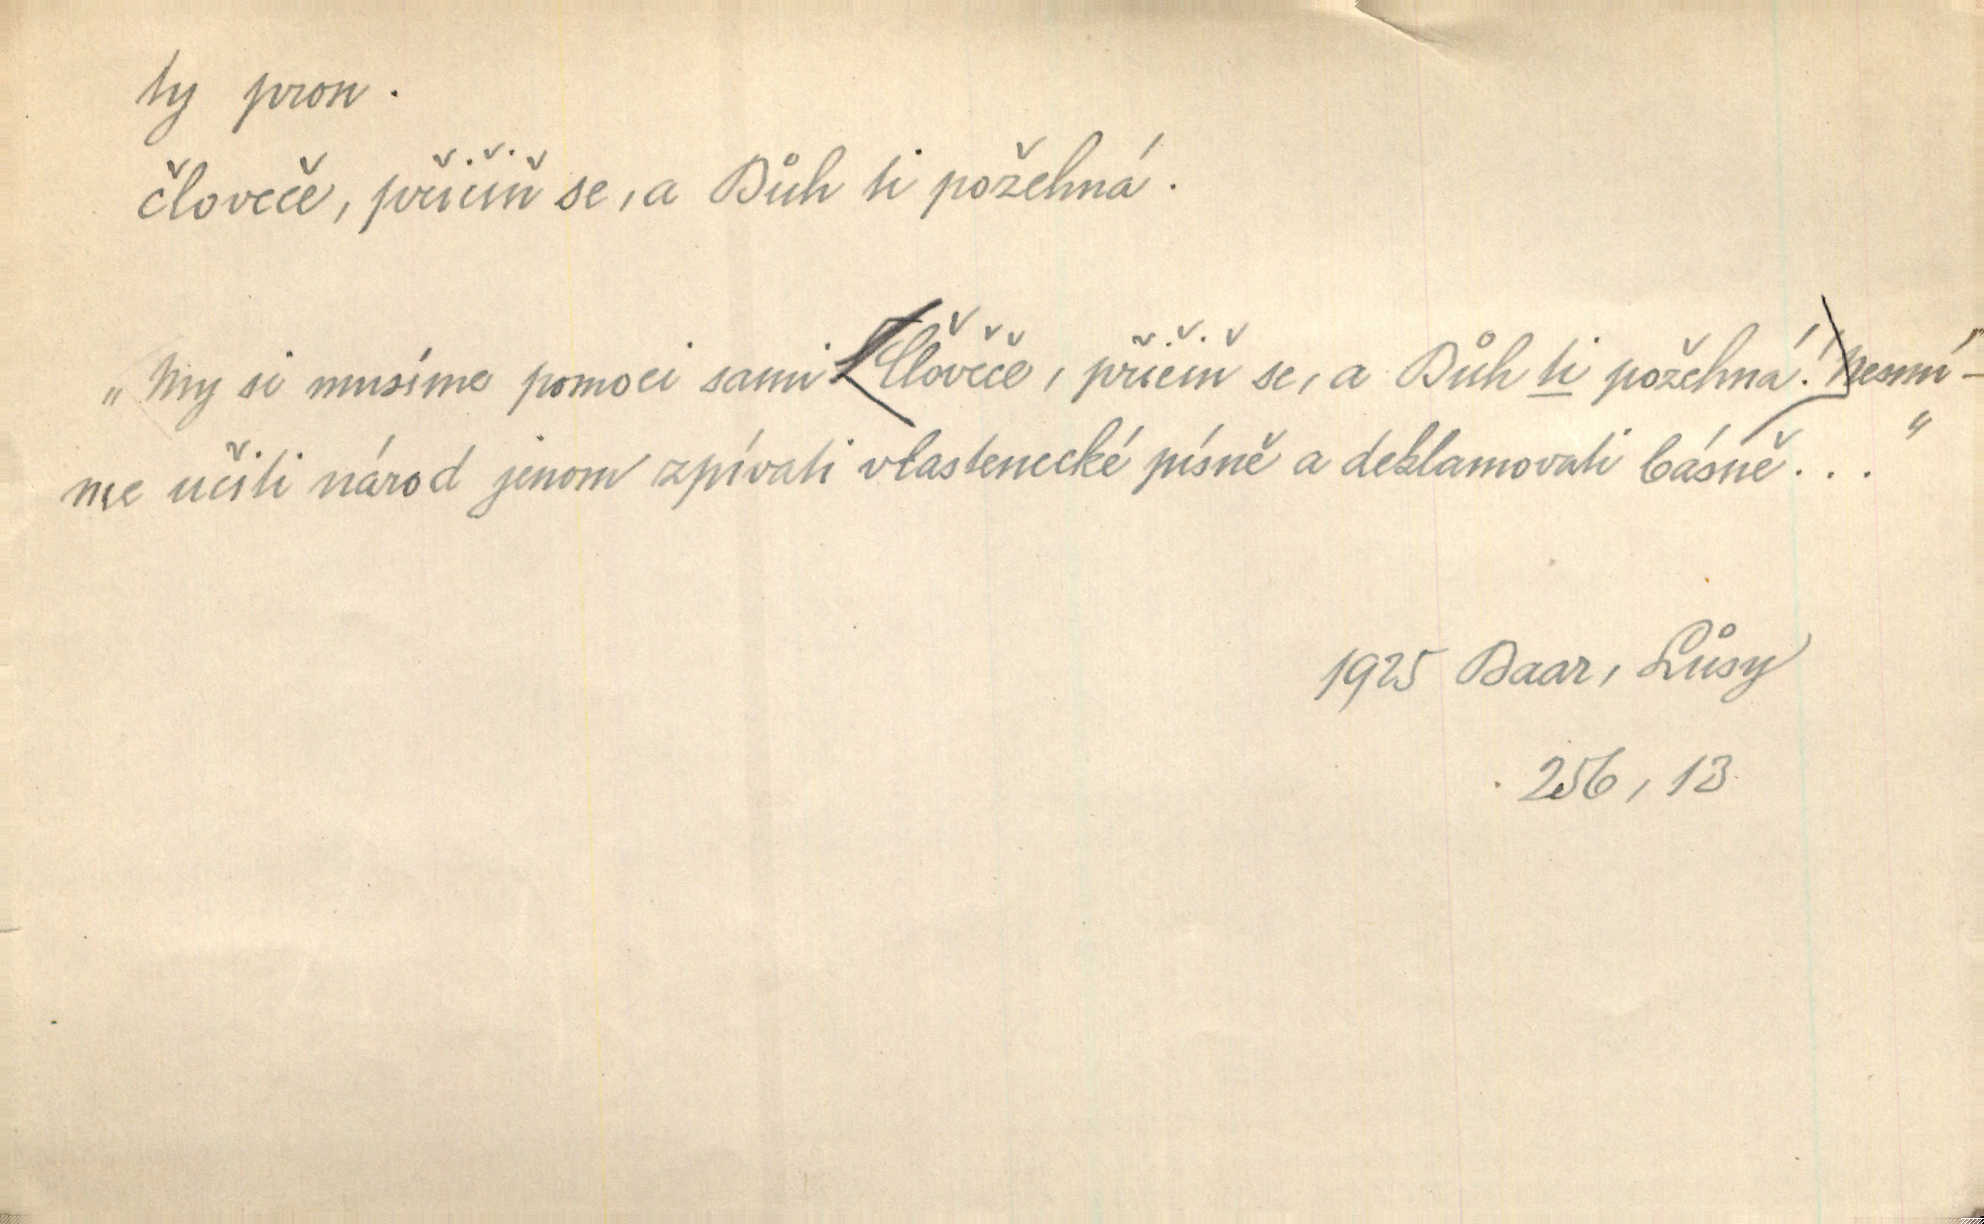 ty pron.
člověče, přičiň se, a Bůh ti požehná.
„My si musíme pomoci sami. Člověče, přičiň se, a Bůh ti požehná! Nesmí-
me učiti národ jenom zpívati vlastenecké písně a deklamovati básně..."
1925 Baar, Lůsy
256, 13